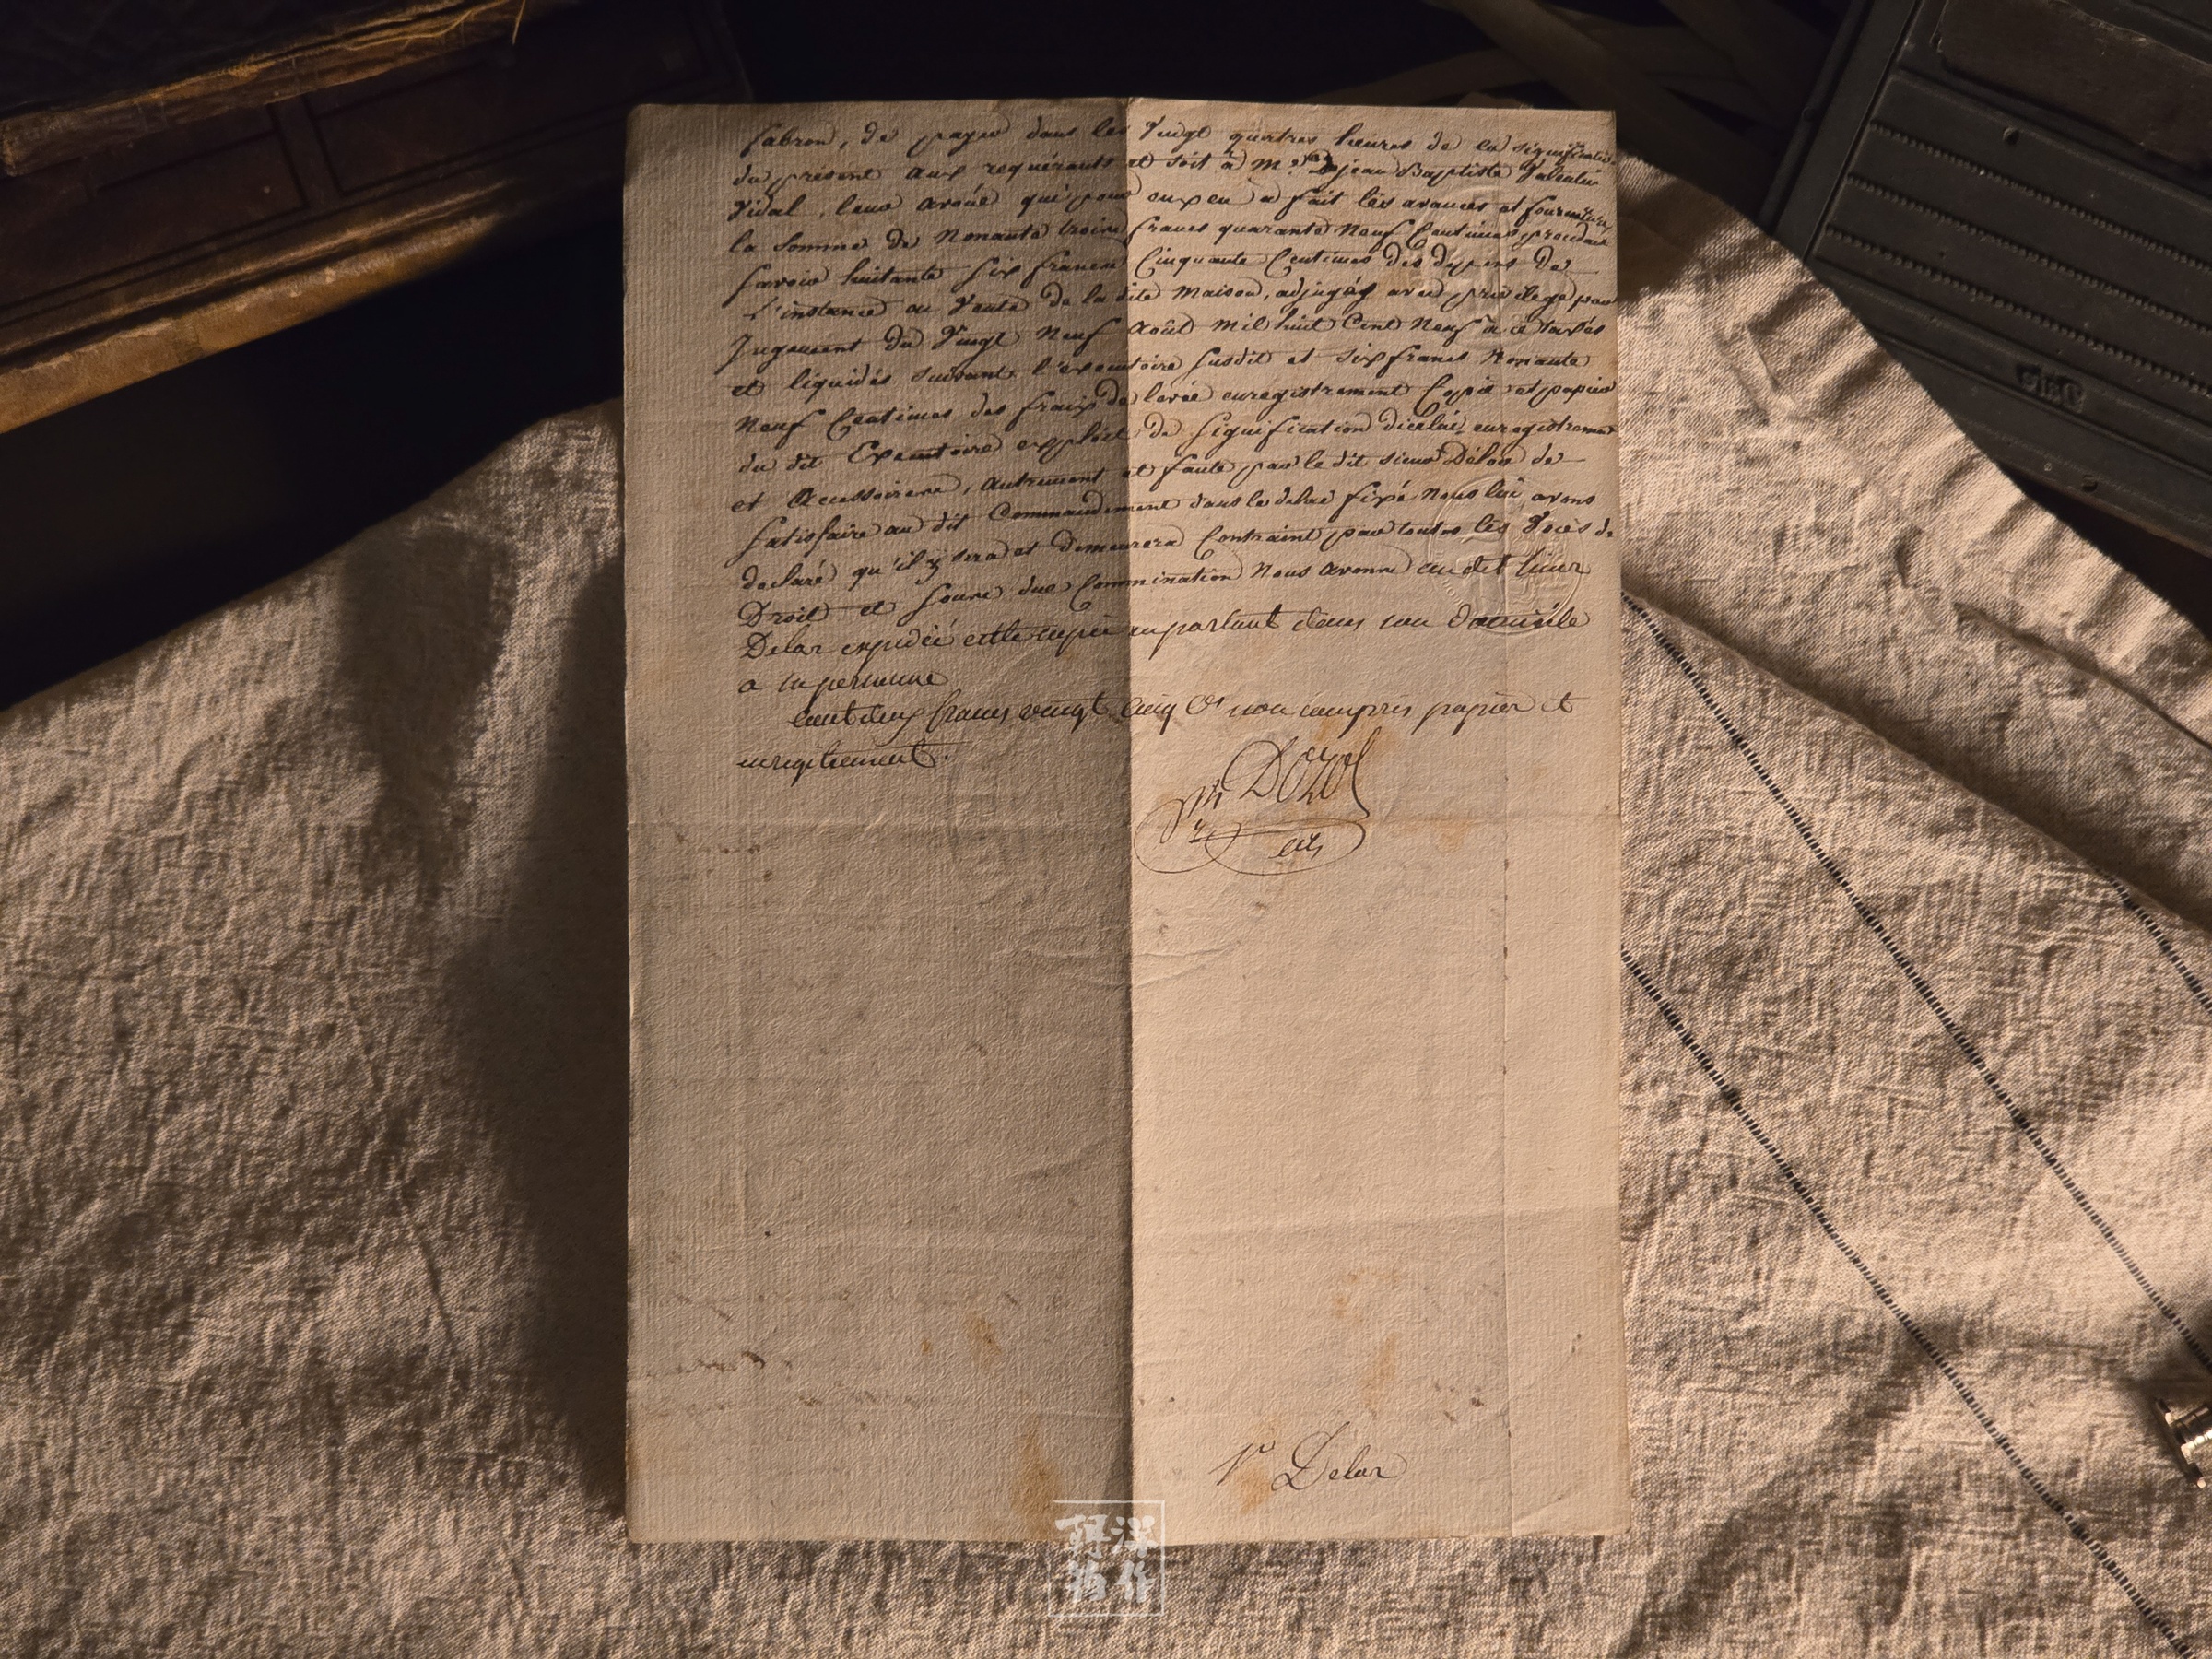 fabron, de payer dans les Vingt quatres heures de la signification
du present aux requérants et soit à Me jean Baptiste Valentin
Vidal, leur avoué qui pour eux en a fait les avances et fournitures
la Somme de Nonante troix francs quarante Neuf Centimes procedant
Savoir huitante Six francs Cinquante Centimes des depens de
L'instance en Vente de la dite Maison, adjugés avec privilege par
Jugement du Vingt Neuf Août Mil huit Cent Neuf à ce taxés
et liquidés suivant l'executoire susdit et six francs Nonante
Neuf Centimes des fraix de levée enregistrement Copie et papier
du dit Executoire exploit de Signification d'icelui, enregistrement
et Accessoires, autrement et faute par le dit sieur Délor de
Satisfaire au dit Commandement dans le delai fixé Nous lui avons
declaré qu'il y sera et demeurera Contraint par toutes les Voies de
Droit et Commination Nous avons au dit sieur
Delor expédié cette copie en parlant dans son domicile
a sa personne
Cout deux francs vingt cinq Cs non compris papier et
enregistrement.
Dozol
Delor